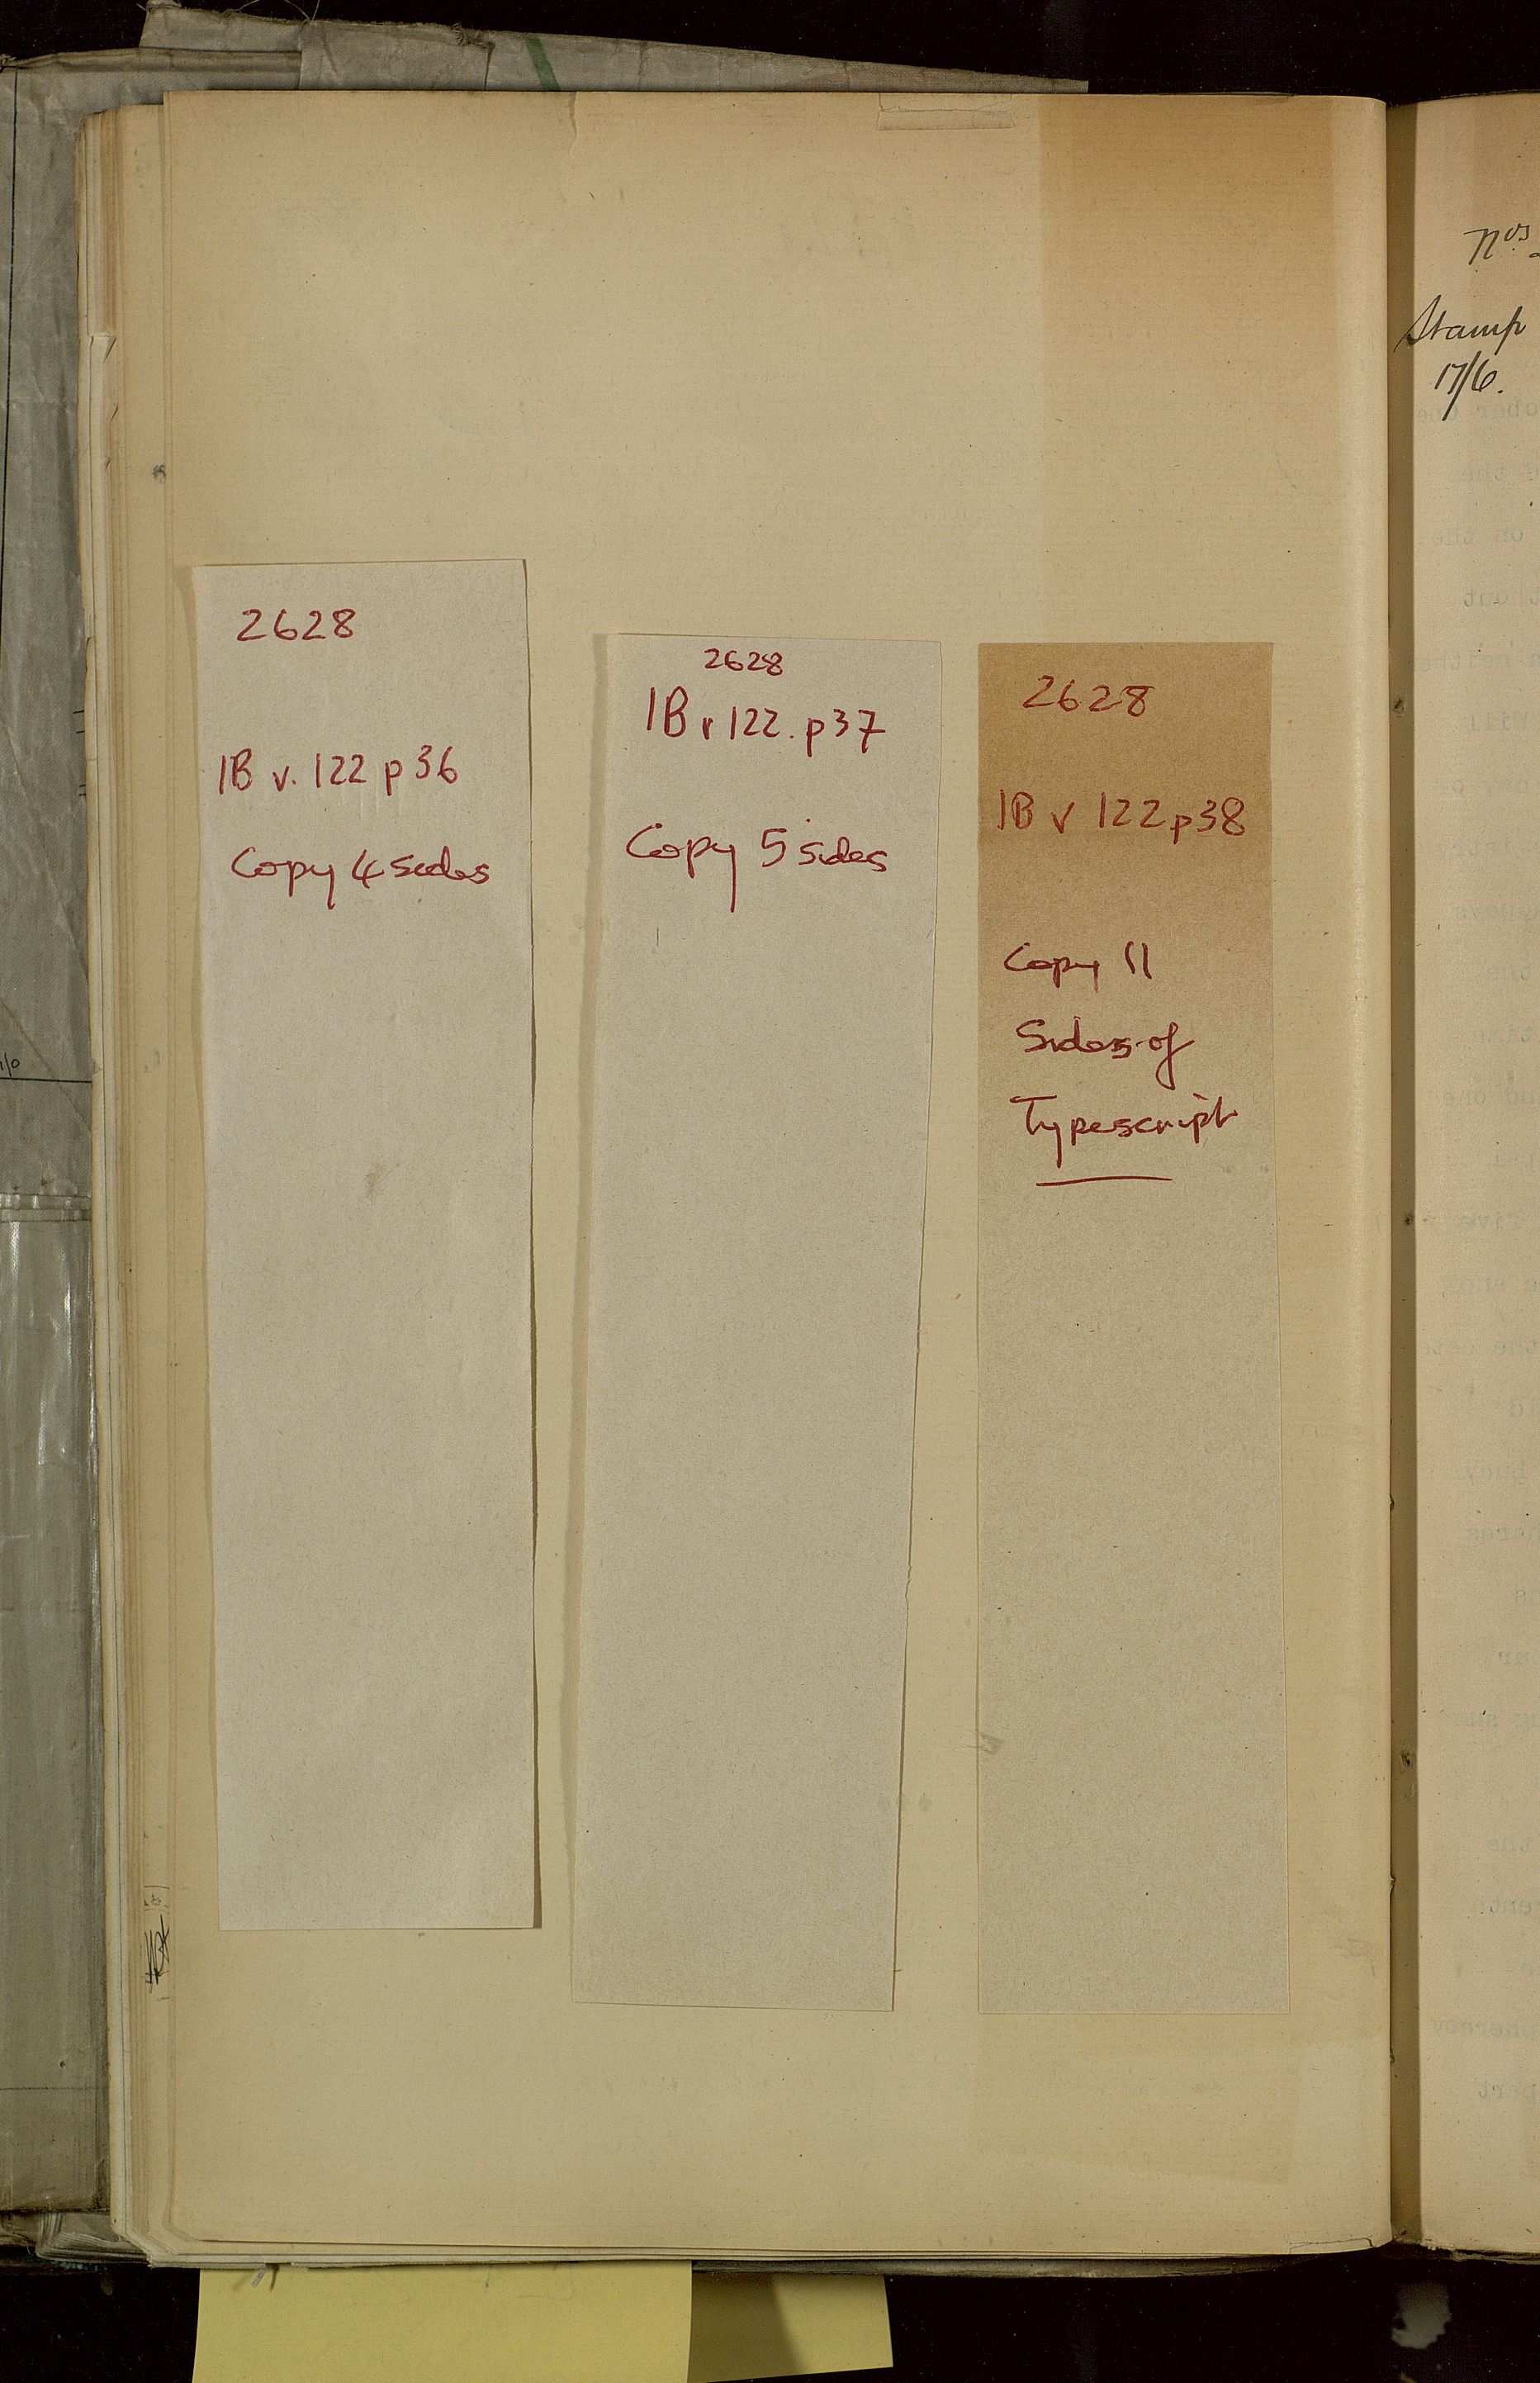 2628
IB v. 122 p 36
Copy 4 sides
2628
IB v 122. p37
Copy 5 sides
2628
IB v 122 p38
Copy 11
Sides of
Typescript
Nos
Stamp
17/6.